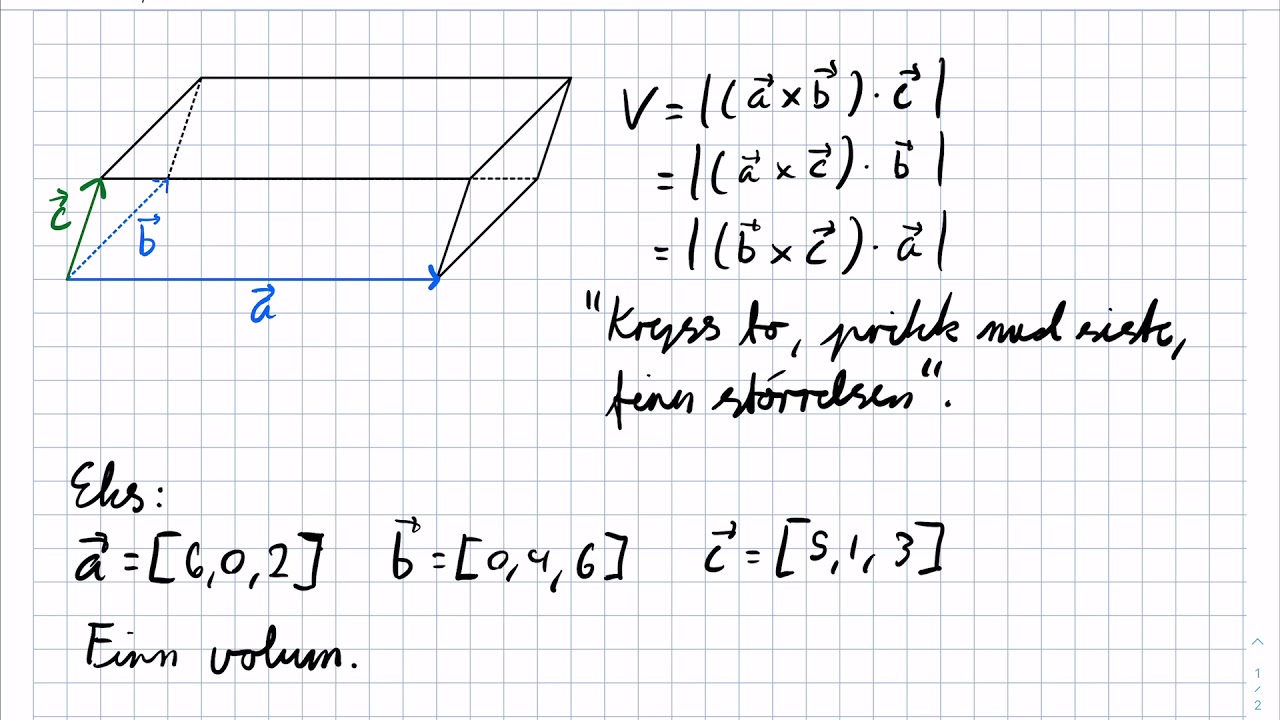 V = |(a⃗ × b⃗) · c⃗|
= |(a⃗ × c⃗) · b⃗|
= |(b⃗ × c⃗) · a⃗|
c⃗
b⃗
a⃗
"Kryss to, prikk med siste,
finn størrelsen".
Eks:
a⃗ = [6,0,2] b⃗ = [0,4,6] c⃗ = [5,1,3]
Finn volum.
1
/
2